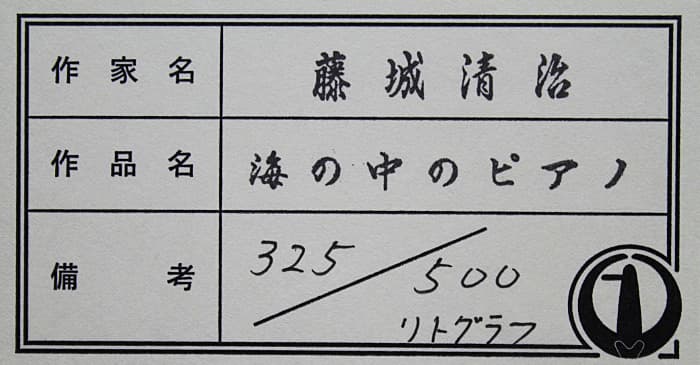 作家名 藤城清治
作品名 海の中のピアノ
備考 325/500
リトグラフ